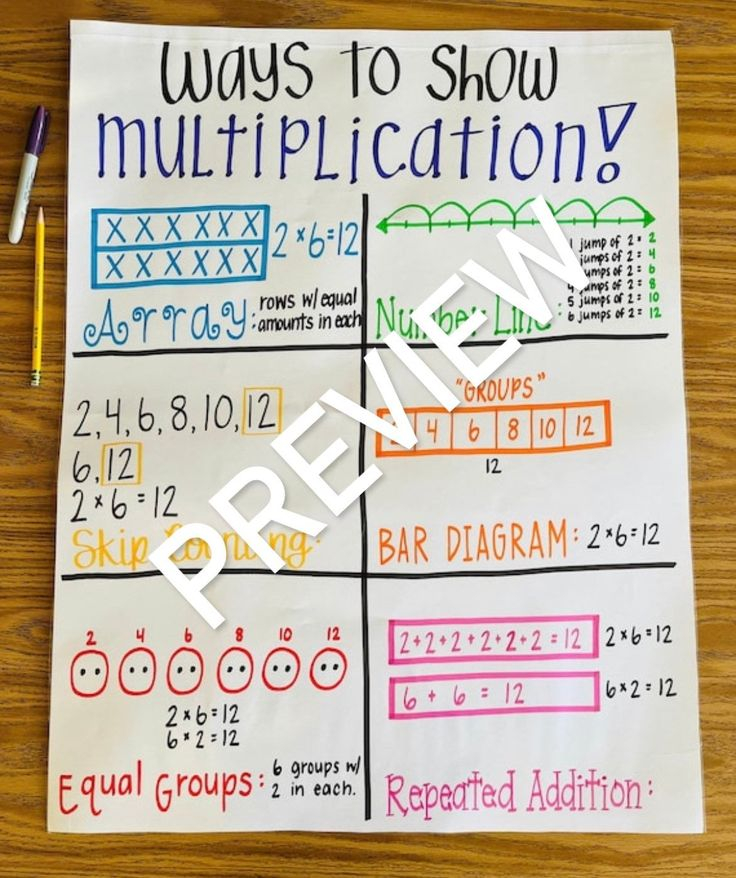 Ways to Show
Multiplication!
X X X X X X
X X X X X X
2×6=12
Array: rows w/ equal
amounts in each
jump of 2 = 2
jumps of 2 = 4
jumps of 2 = 6
jumps of 2 = 8
5 jumps of 2 = 10
6 jumps of 2 = 12
Number Line:
2,4,6,8,10,12
6,12
2×6=12
Skip Counting:
"GROUPS"
4 6 8 10 12
12
BAR DIAGRAM: 2×6=12
2 4 6 8 10 12
2×6=12
6×2=12
Equal Groups: 6 groups w/
2 in each.
2+2+2+2+2+2=12 2×6=12
6 + 6 = 12 6×2=12
Repeated Addition:
PREVIEW